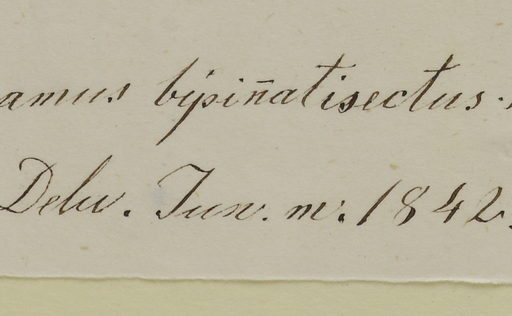 amus bipiñatisectus.
Delw. Jun. m. 1842.